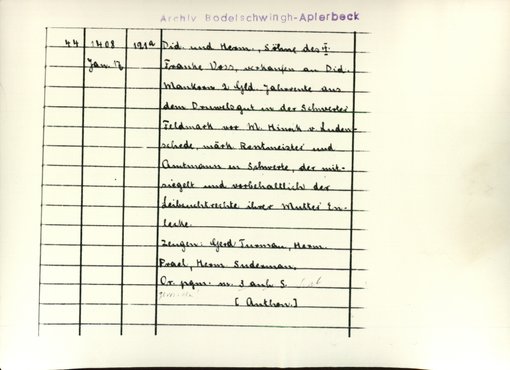 Archiv Bodelschwingh-Aplerbeck
44 1408 191a Did. und Herm., Söhne des †
Jan. 17 Franke Voss, verkaufen an Did.
Mankorn 2 Gld. Jahrrente aus
dem Druwelsgut in der Schwerter
Feldmark vor W. Hinrik v. Luden-
schede, märk. Rentmeister und
Amtmann in Schwerte, der mit-
siegelt und vorbehaltlich der
Leibzuchtrechte ihrer Mutter En-
leke.
Zeugen: Gerd Turman, Herm.
Prael, Herm. Suderman.
Or. pgm. m. 3 anh. S.
[Anthon.]